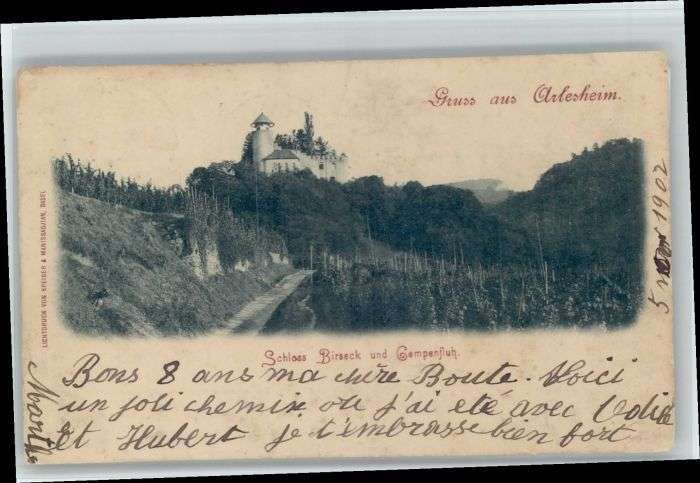 Gruss aus Arlesheim.
LICHTDRUCK VON SPEISER & BASEL
5 1902
Schloss Birseck und Gempenfluh.
Bons 8 ans ma chère Boute. Voici
un joli chemin, ou j'ai été avec Odile
et Hubert je t'embrasse bien fort